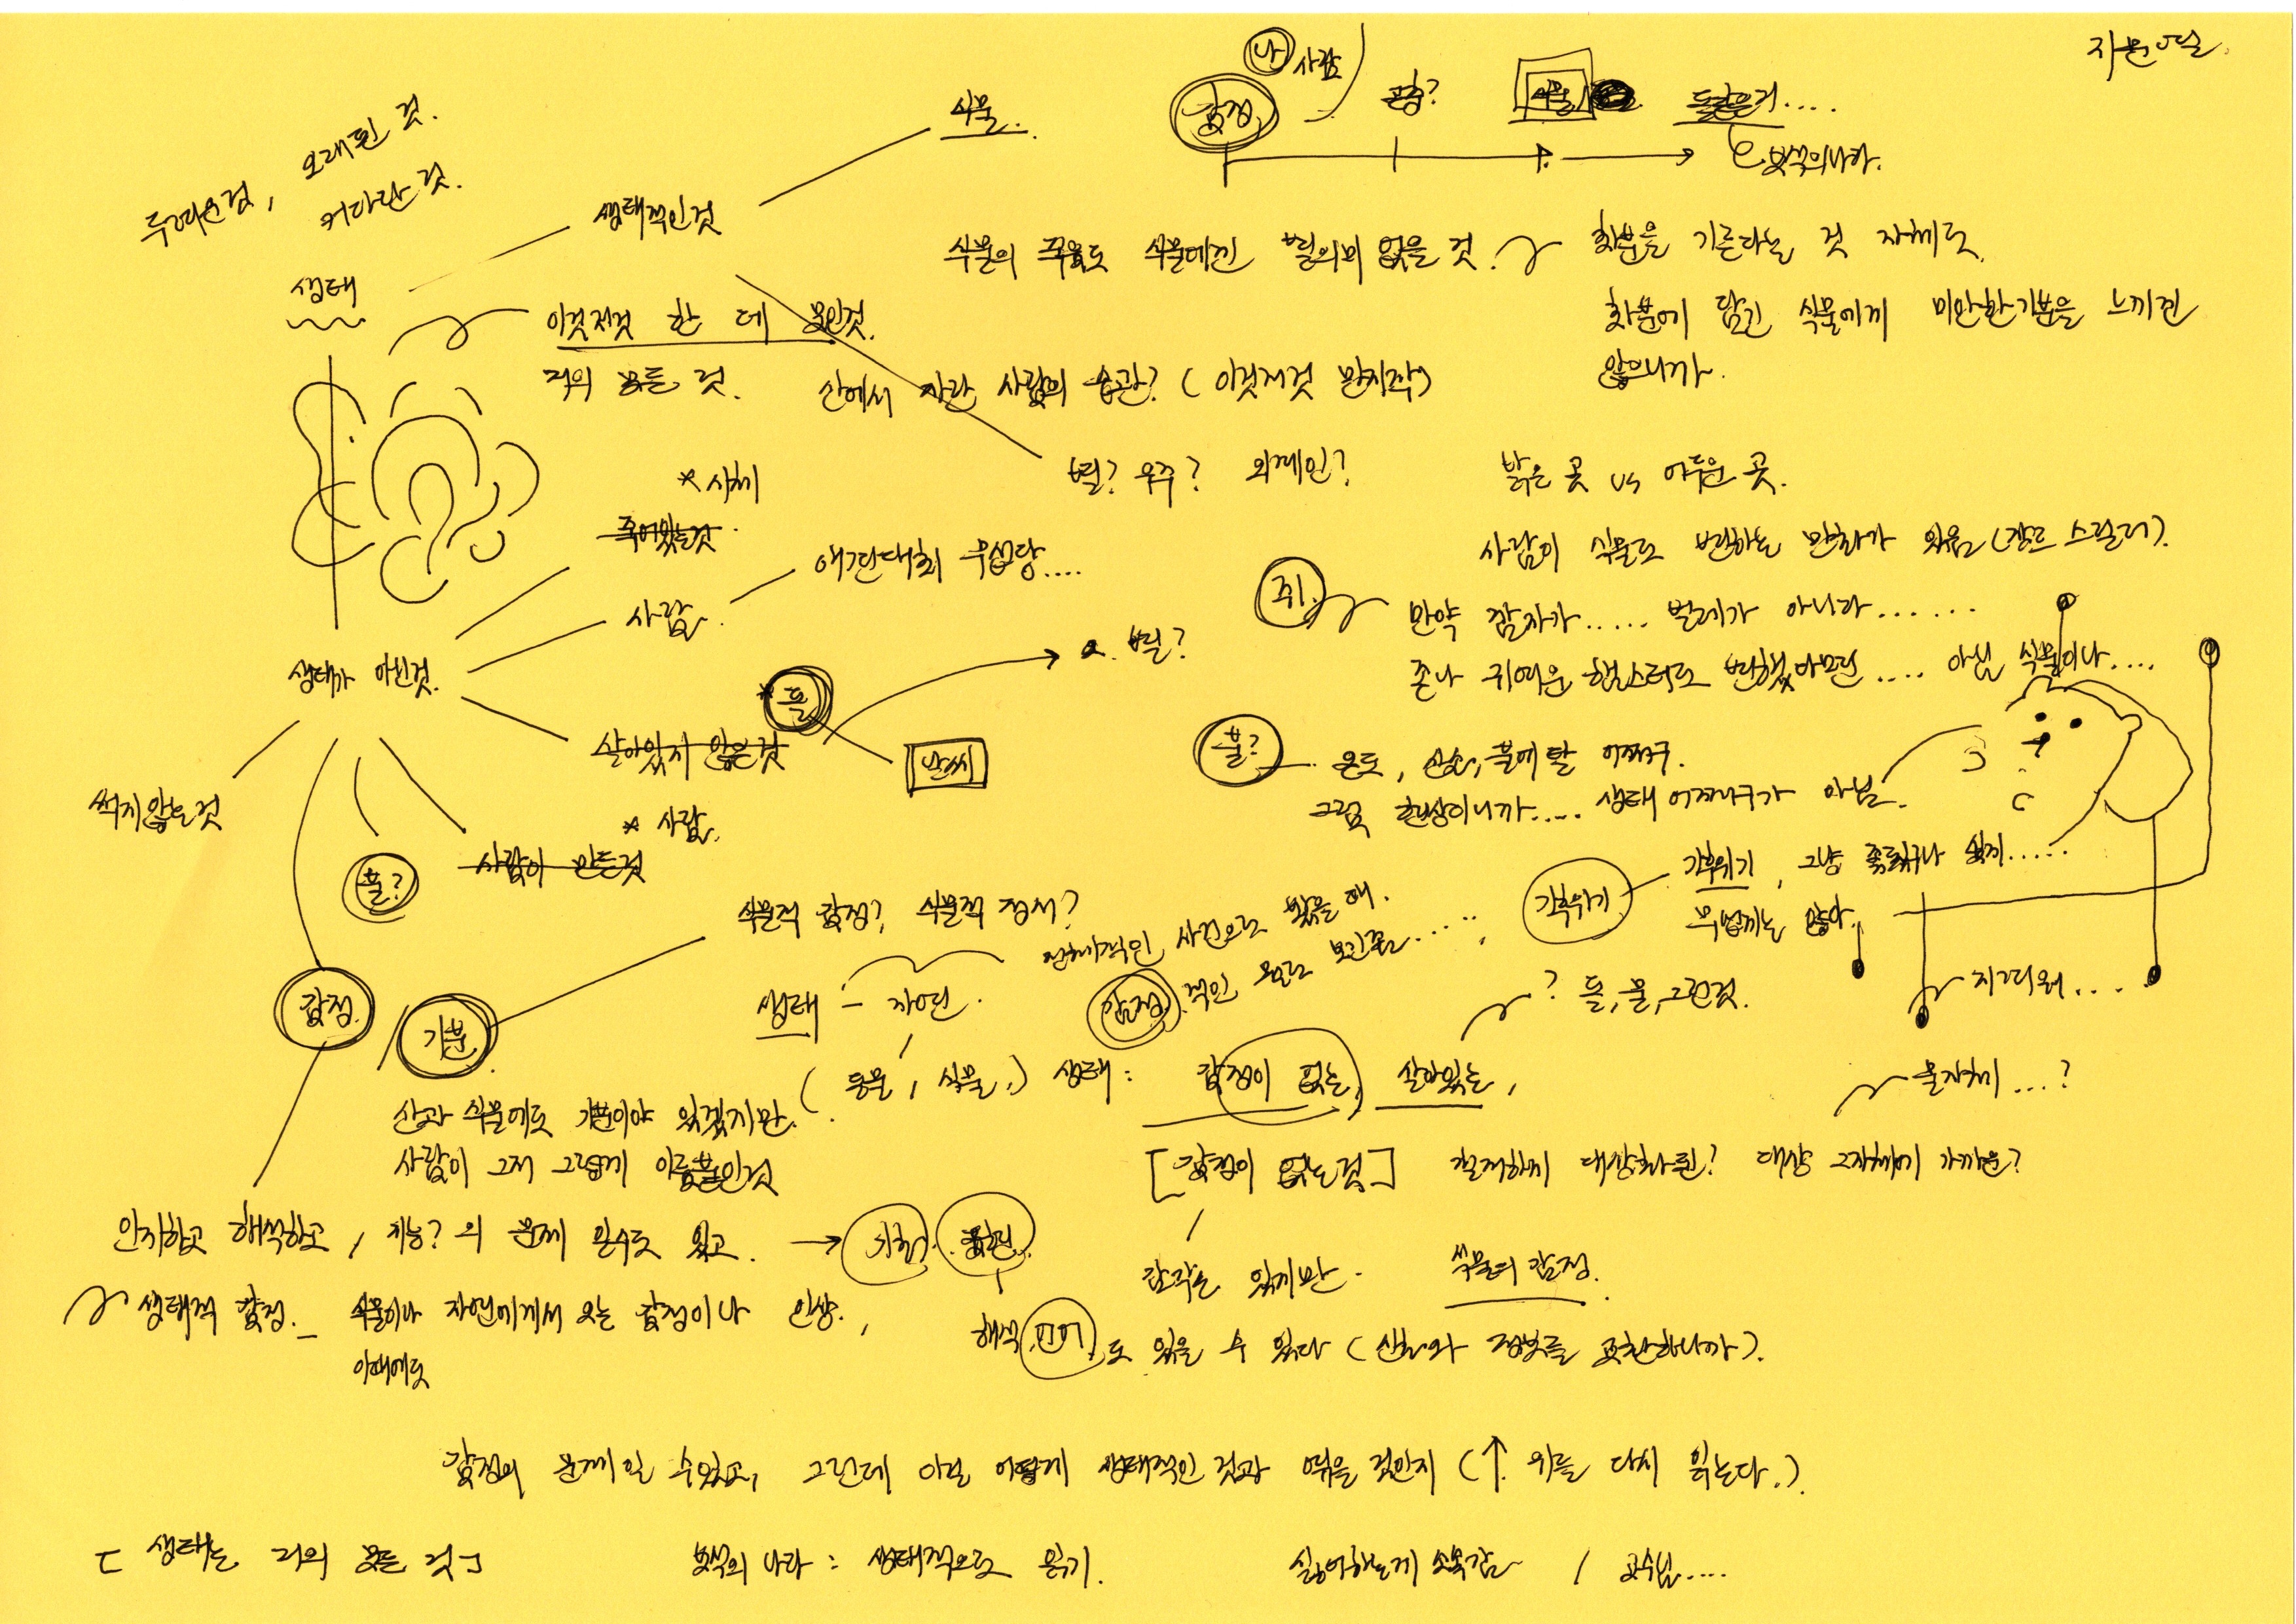 오래된 것.
커다란 것.
생태
생태적인것
식물.
나 사람
감정
곤충?
식물
보석의나라.
식물의 죽음도 식물에겐 별의미 없을 것.
화분을 기른다는 것 자체도
화분에 담긴 식물에게 미안한기분을 느끼진
않으니까.
이것저것 한 데 모인것.
거의 모든 것.
산에서 자란 사람의 습관? (이것저것 만지작)
별? 우주? 외계인?
밝은 곳 vs 어두운 곳.
사람이 식물로 변하는 만화가 있음 (장르 스릴러).
* 시체
죽어있는것.
사람.
쥐.
만약 잠자가..... 벌레가 아니라......
존나 귀여운 햄스터로 변했더라면.... 아님 식물이나....
생태가 아닌것.
별?
* 돌
살아있지 않은것
날씨
불?
온도, 산소, 불에 탈 어쩌구.
그럼 현상이니까.... 생태 어쩌구가 아님.
썩지않는것
* 사람.
사람이 만든것
불?
기후위기
기후위기, 그냥 좆됐구나 싶지.....
무섭게는 않아.
식물적 감정? 식물적 정서?
전체적인 사건으로 봤을 때.
감정
기분
생태 – 자연.
? 돌, 물, 그런것.
지겨워....
(동물, 식물,) 생태: 감정이 없는, 살아있는,
물자체...?
산과 식물에도 기분이야 있겠지만.
사람이 그저 그렇게 이름붙인것
[감정이 없는것] 철저하게 대상화된? 대상 그자체에 가까운?
인지하고 해석하고, 지능? 의 문제 일수도 있고. → 기호. 표현.
감각은 있지만. 식물의 감정.
생태적 감정. – 식물이나 자연에게서 오는 감정이나 인상.,
이때에도
해석, 언어, 도 있을 수 있다 (신호와 정보를 교환하니까).
감정의 문제일 수있고, 그런데 이걸 어떻게 생태적인 것과 엮을 것인지 (↑ 위를 다시 읽는다.)
[생태는 거의 모든 것]
보석의 나라: 생태적으로 읽기.
싫어하는게 소속감 / 교수님....